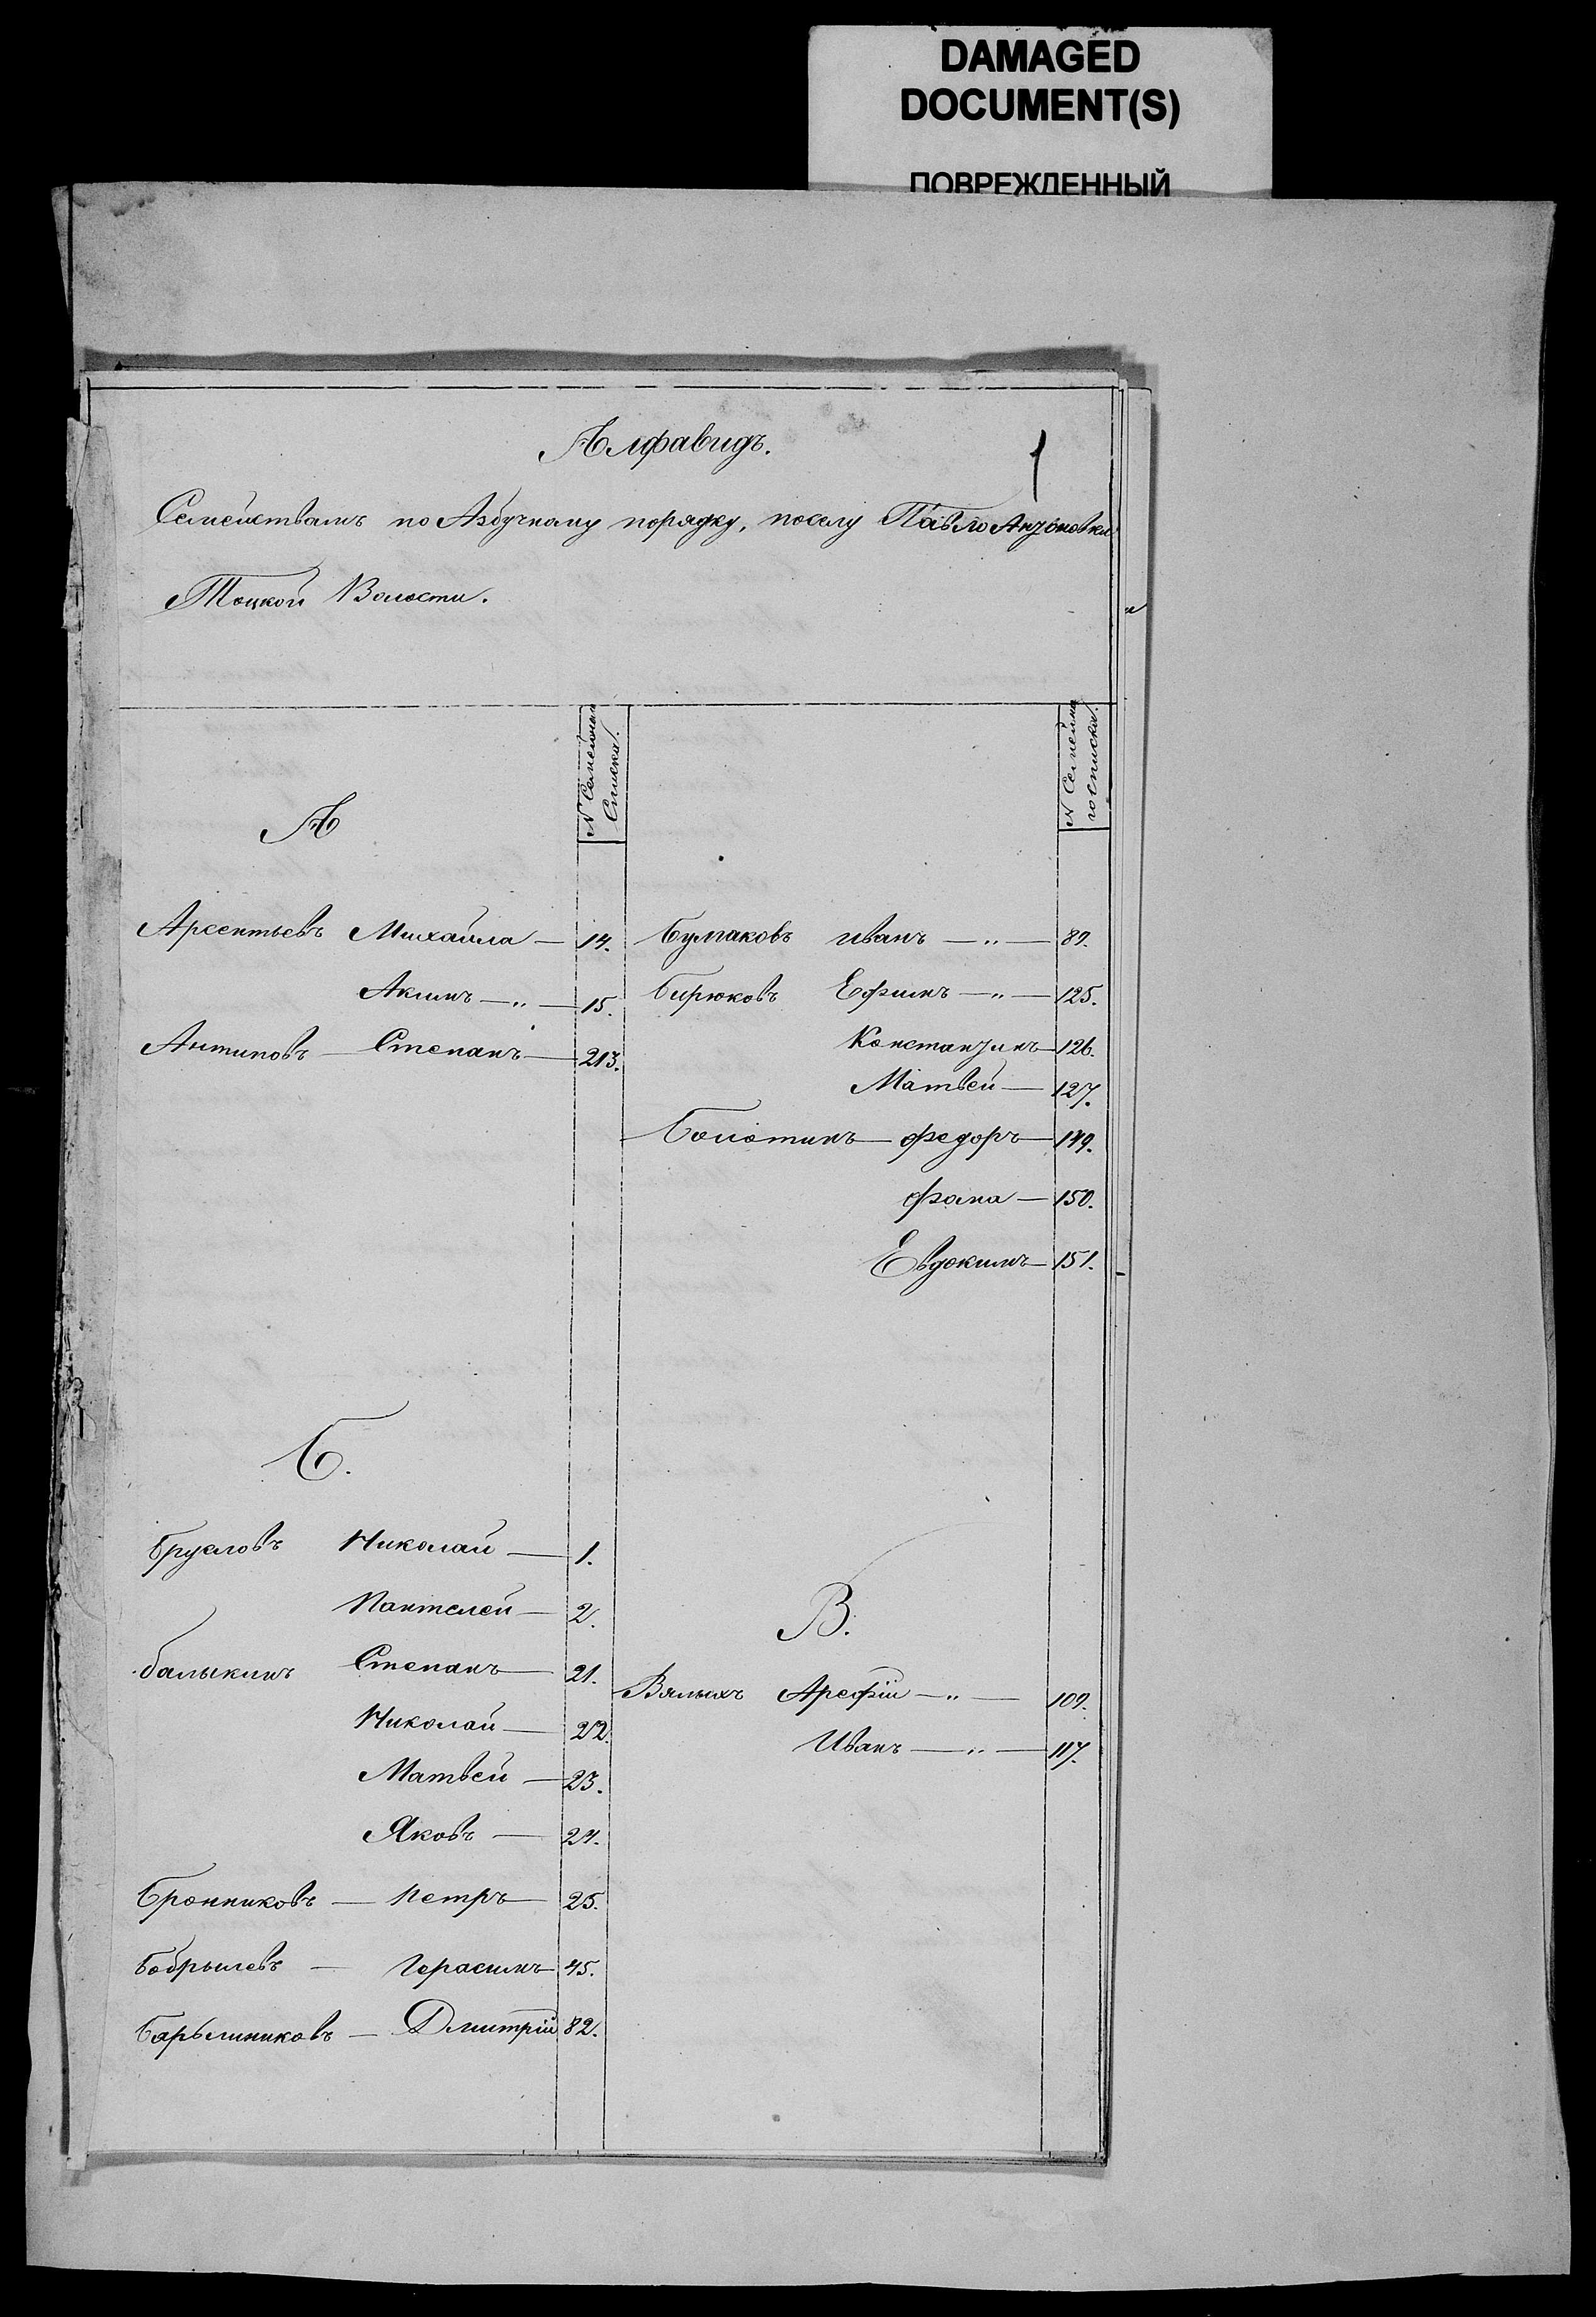 DAMAGED
DOCUMENT(S)
ПОВРЕЖДЕННЫЙ
1
Алфавидъ.
Семействамъ по Азбучному порядку, поселу ПавлоАнтоновки
Тоцкой Волости.
N Семейнаго
Списка.
А
Арсентьевъ Михайла — 14.
Акимъ — „ — 15.
Антиповъ — Степанъ — 213.
Б.
Бруслов
Николай — 1.
Пантелей — 2.
Балыкинъ Степанъ — 21.
Николай — 22.
Матвей — 23.
Яковъ — 24.
Бронниковъ — Петръ — 25.
Бобрышевъ — Герасимъ — 45.
Барышниковъ — Дмитрій 82.
N Семейна
госписка.
Булгаковъ иванъ — „ — 89.
Бирюковъ Ефимъ — „ — 125.
Константинъ — 126.
Матвей — 127.
Болотинъ — федоръ — 149.
фома — 150.
Евдокимъ — 151.
В.
Вялыхъ Арефій — „ — 109.
Иванъ — „ — 117.